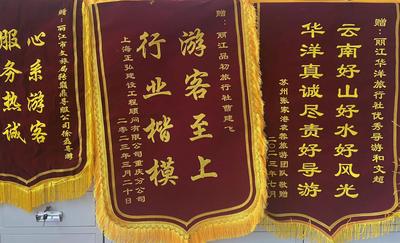 赠：丽江市文旅局转巅鼎导服公司徐鑫导游
心系游客
服务热诚
赠：丽江品初旅行社曹建飞
游客至上
行业楷模
上海正弘建设工程顾问有限公司重庆分公司
二〇二三年三月二十日
赠：丽江华洋旅行社优秀导游和文超
云南好山好水好风光
华洋真诚尽责好导游
苏州张家港袁蓉旅游团队敬赠
二〇二三年七月